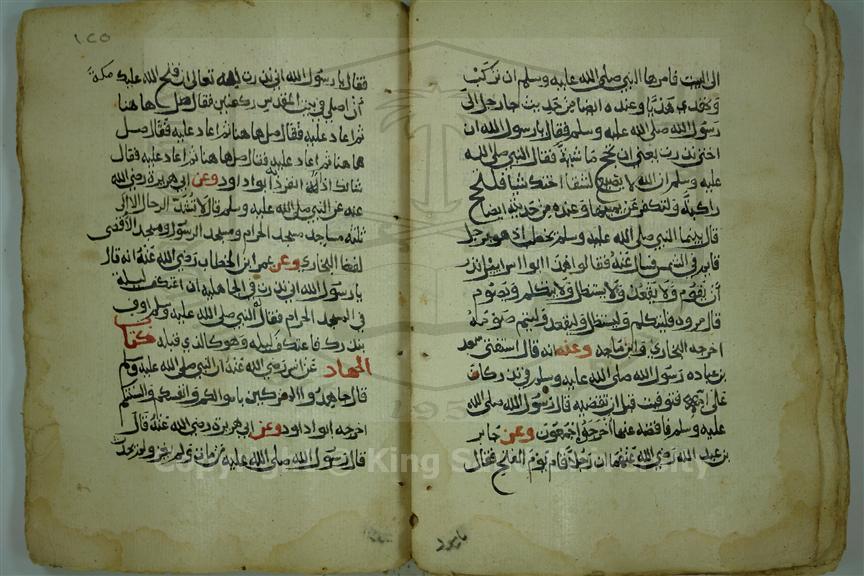 الى البيت فامرها النبي صلى الله عليه وسلم ان تركب
وتهدي هديا وعنده ايضا من حديث جا رجل الى
رسول الله صلى الله عليه وسلم فقال يا رسول الله ان
اختي نذرت يعني ان تحج ماشية فقال النبي صلى الله
عليه وسلم ان الله لا يصنع لشقا اختك شيا فلتحج
راكبة ولتكفر عن يمينها وعنده من حديثه ايضا ح
قال بينما النبي صلى الله عليه وسلم يخطب اذ هو برجل
قايم في الشمس فسال عنه فقالوا هذا ابو اسراييل نذر
ان يقوم ولا يقعد ولا يستظل ولا يتكلم ويصوم
قال مروه فليتكلم وليستظل وليقعد وليتم صومه
اخرجه البخاري وابن ماجه وعنه انه قال استفتى سعد
بن عباده رسول الله صلى الله عليه وسلم في نذر كان
على امه فتوفيت قبل ان تقضيه قال رسول الله صلى الله
عليه وسلم فاقضه عنها اخرجوه اجمعون وعن جابر
بن عبد الله رضي الله عنهما ان رجلا قام يوم الفتح فقال
يا رسول
١٢٥
فقال يا رسول الله اني نذرت لله تعالى ان فتح الله عليك مكة
ان اصلي في بيت المقدس ركعتين فقال صل ها هنا
ثم اعاد عليه فقال صل ها هنا ثم اعاد عليه فقال صل
ها هنا ثم اعاد عليه فقال صل ها هنا ثم اعاد عليه فقال
شانك اذا انفرد به ابو داود وعن ابي هريرة رضي الله
عنه عن النبي صلى الله عليه وسلم قال لا تشد الرحال الا الى
ثلثه مساجد مسجد الحرام ومسجد الرسول ومسجد الاقصى
لفظ البخاري وعن عمر ابن الخطاب رضي الله عنه انه قال
يا رسول الله اني نذرت في الجاهلية ان اعتكف ليلة
في المسجد الحرام فقال له النبي صلى الله عليه وسلم اوف
بنذرك فاعتكف ليله وهو كالذي قبله كتاب
الجهاد عن انس رضي الله عنه ان النبي صلى الله عليه وسلم
قال جاهدوا المشركين باموالكم وانفسكم والسنتكم
اخرجه ابو داود وعن ابي هريرة رضي الله عنه قال
قال رسول الله صلى الله عليه وسلم من مات ولم يغز ولم يحدث
Copyright © King Saud University
195